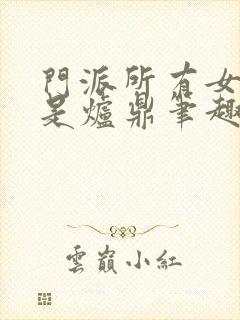 門派所有女
是爐鼎筆趣
雲巔小紅